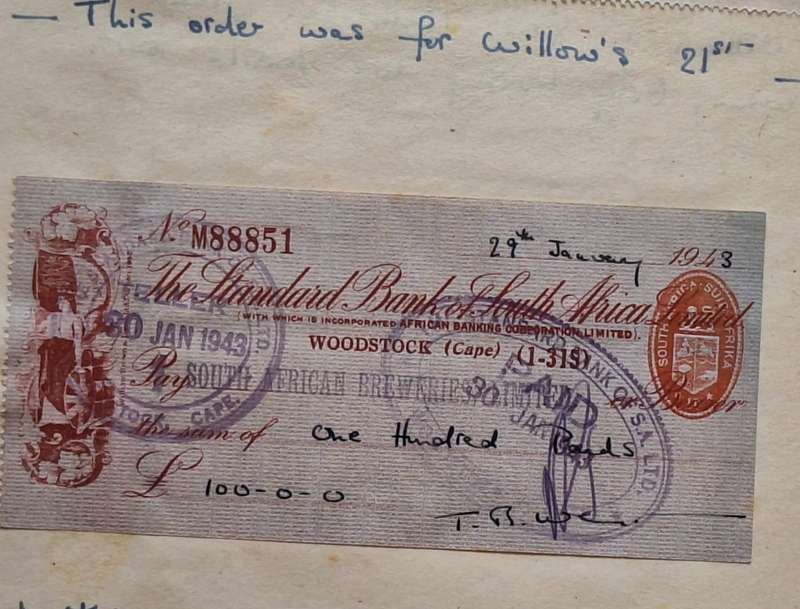 — This order was for Willow's 21st —
No M88851
29th January 1943
The Standard Bank of South Africa Limited
(WITH WHICH IS INCORPORATED AFRICAN BANKING CORPORATION LIMITED).
WOODSTOCK (Cape) (1-315)
SOUTH AFRICA SUID AFRIKA
30 JAN 1943
CAPE.
Pay SOUTH AFRICAN BREWERIES LIMITED or Bearer
the sum of One Hundred Pounds
£ 100-0-0
T. B.
BANK OF S.A. LTD.
30 JAN